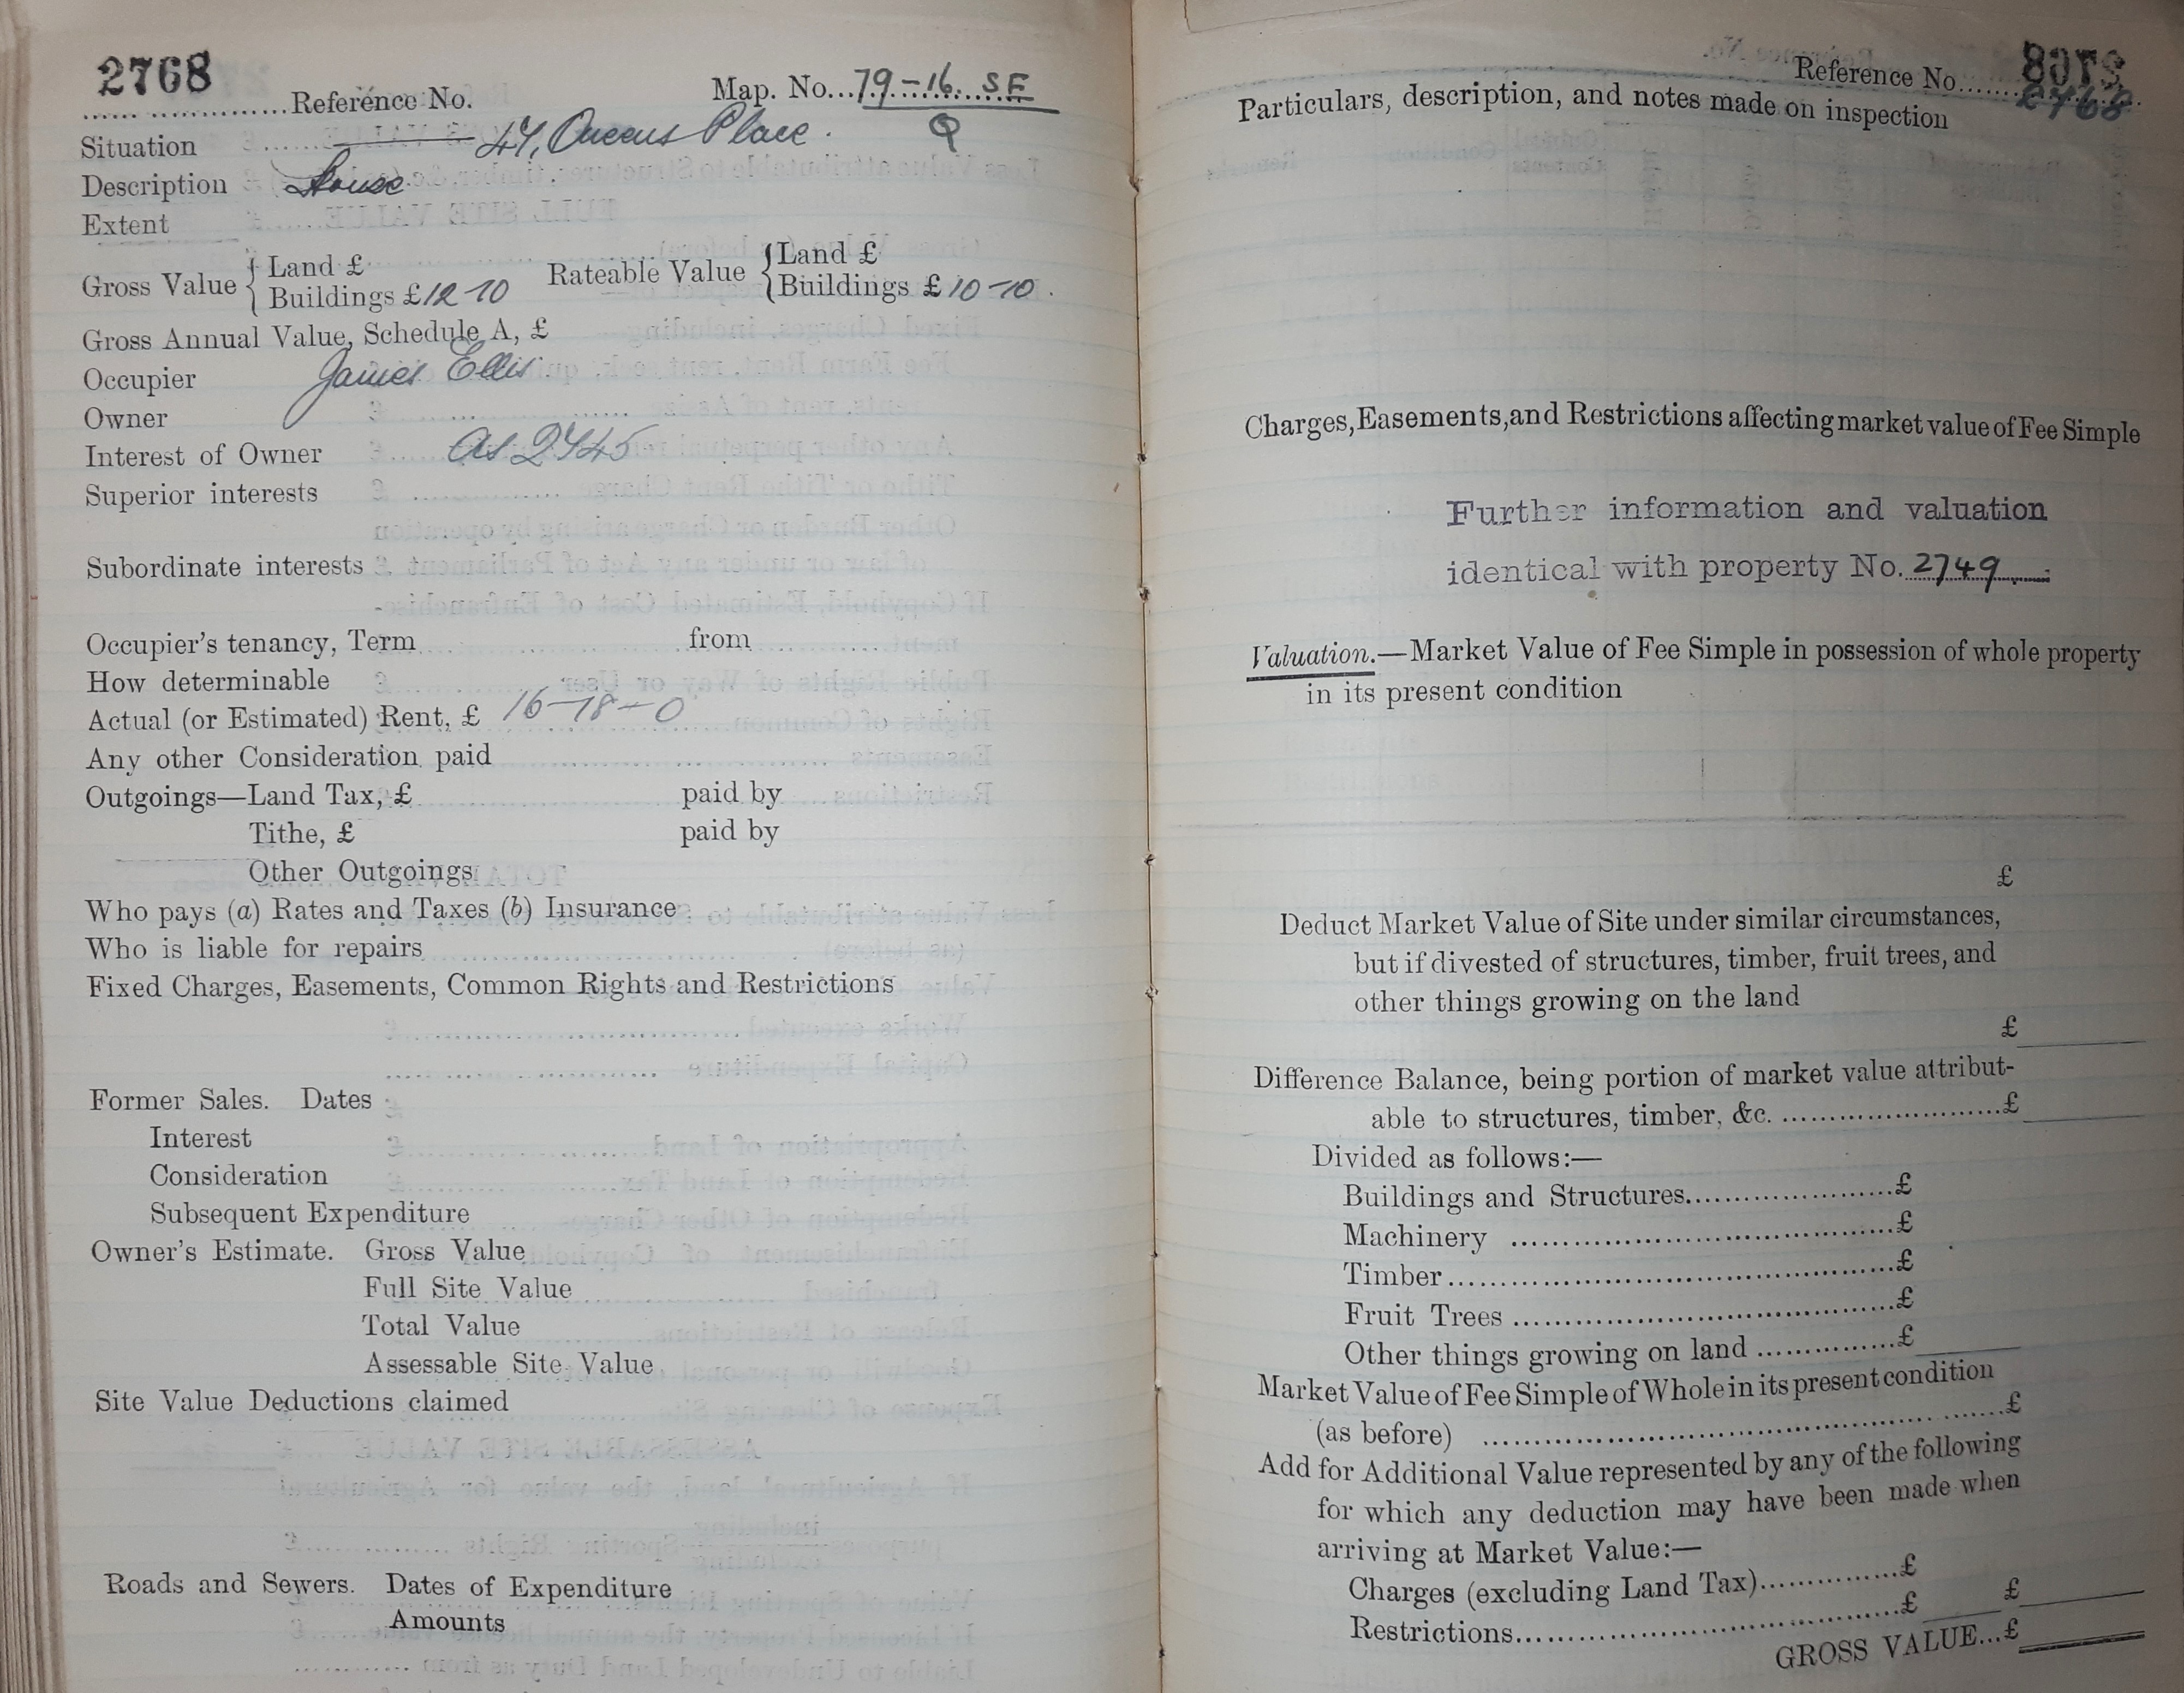 2768
Reference No. Map. No... 79-16. S.E
Q
Situation 47, Queens Place.
Description House
Extent
Gross Value { Land £ Rateable Value { Land £
Buildings £ 12-10 Buildings £ 10-10.
Gross Annual Value, Schedule A, £
Occupier James Ellis
Owner
Interest of Owner as 2745
Superior interests
Subordinate interests
Occupier's tenancy, Term from
How determinable
Actual (or Estimated) Rent, £ 16-18-0
Any other Consideration paid
Outgoings—Land Tax, £ paid by
Tithe, £ paid by
Other Outgoings
Who pays (a) Rates and Taxes (b) Insurance
Who is liable for repairs
Fixed Charges, Easements, Common Rights and Restrictions
Former Sales. Dates
Interest
Consideration
Subsequent Expenditure
Owner's Estimate. Gross Value
Full Site Value
Total Value
Assessable Site Value
Site Value Deductions claimed
Roads and Sewers. Dates of Expenditure
Amounts
Reference No. 2768
Particulars, description, and notes made on inspection
Charges, Easements, and Restrictions affecting market value of Fee Simple
Further information and valuation
identical with property No. 2749
Valuation.—Market Value of Fee Simple in possession of whole property
in its present condition
£
Deduct Market Value of Site under similar circumstances,
but if divested of structures, timber, fruit trees, and
other things growing on the land
£
Difference Balance, being portion of market value attribut-
able to structures, timber, &c. £
Divided as follows:—
Buildings and Structures £
Machinery £
Timber £
Fruit Trees £
Other things growing on land £
Market Value of Fee Simple of Whole in its present condition
(as before) £
Add for Additional Value represented by any of the following
for which any deduction may have been made when
arriving at Market Value:—
Charges (excluding Land Tax) £
Restrictions £ £
GROSS VALUE...£